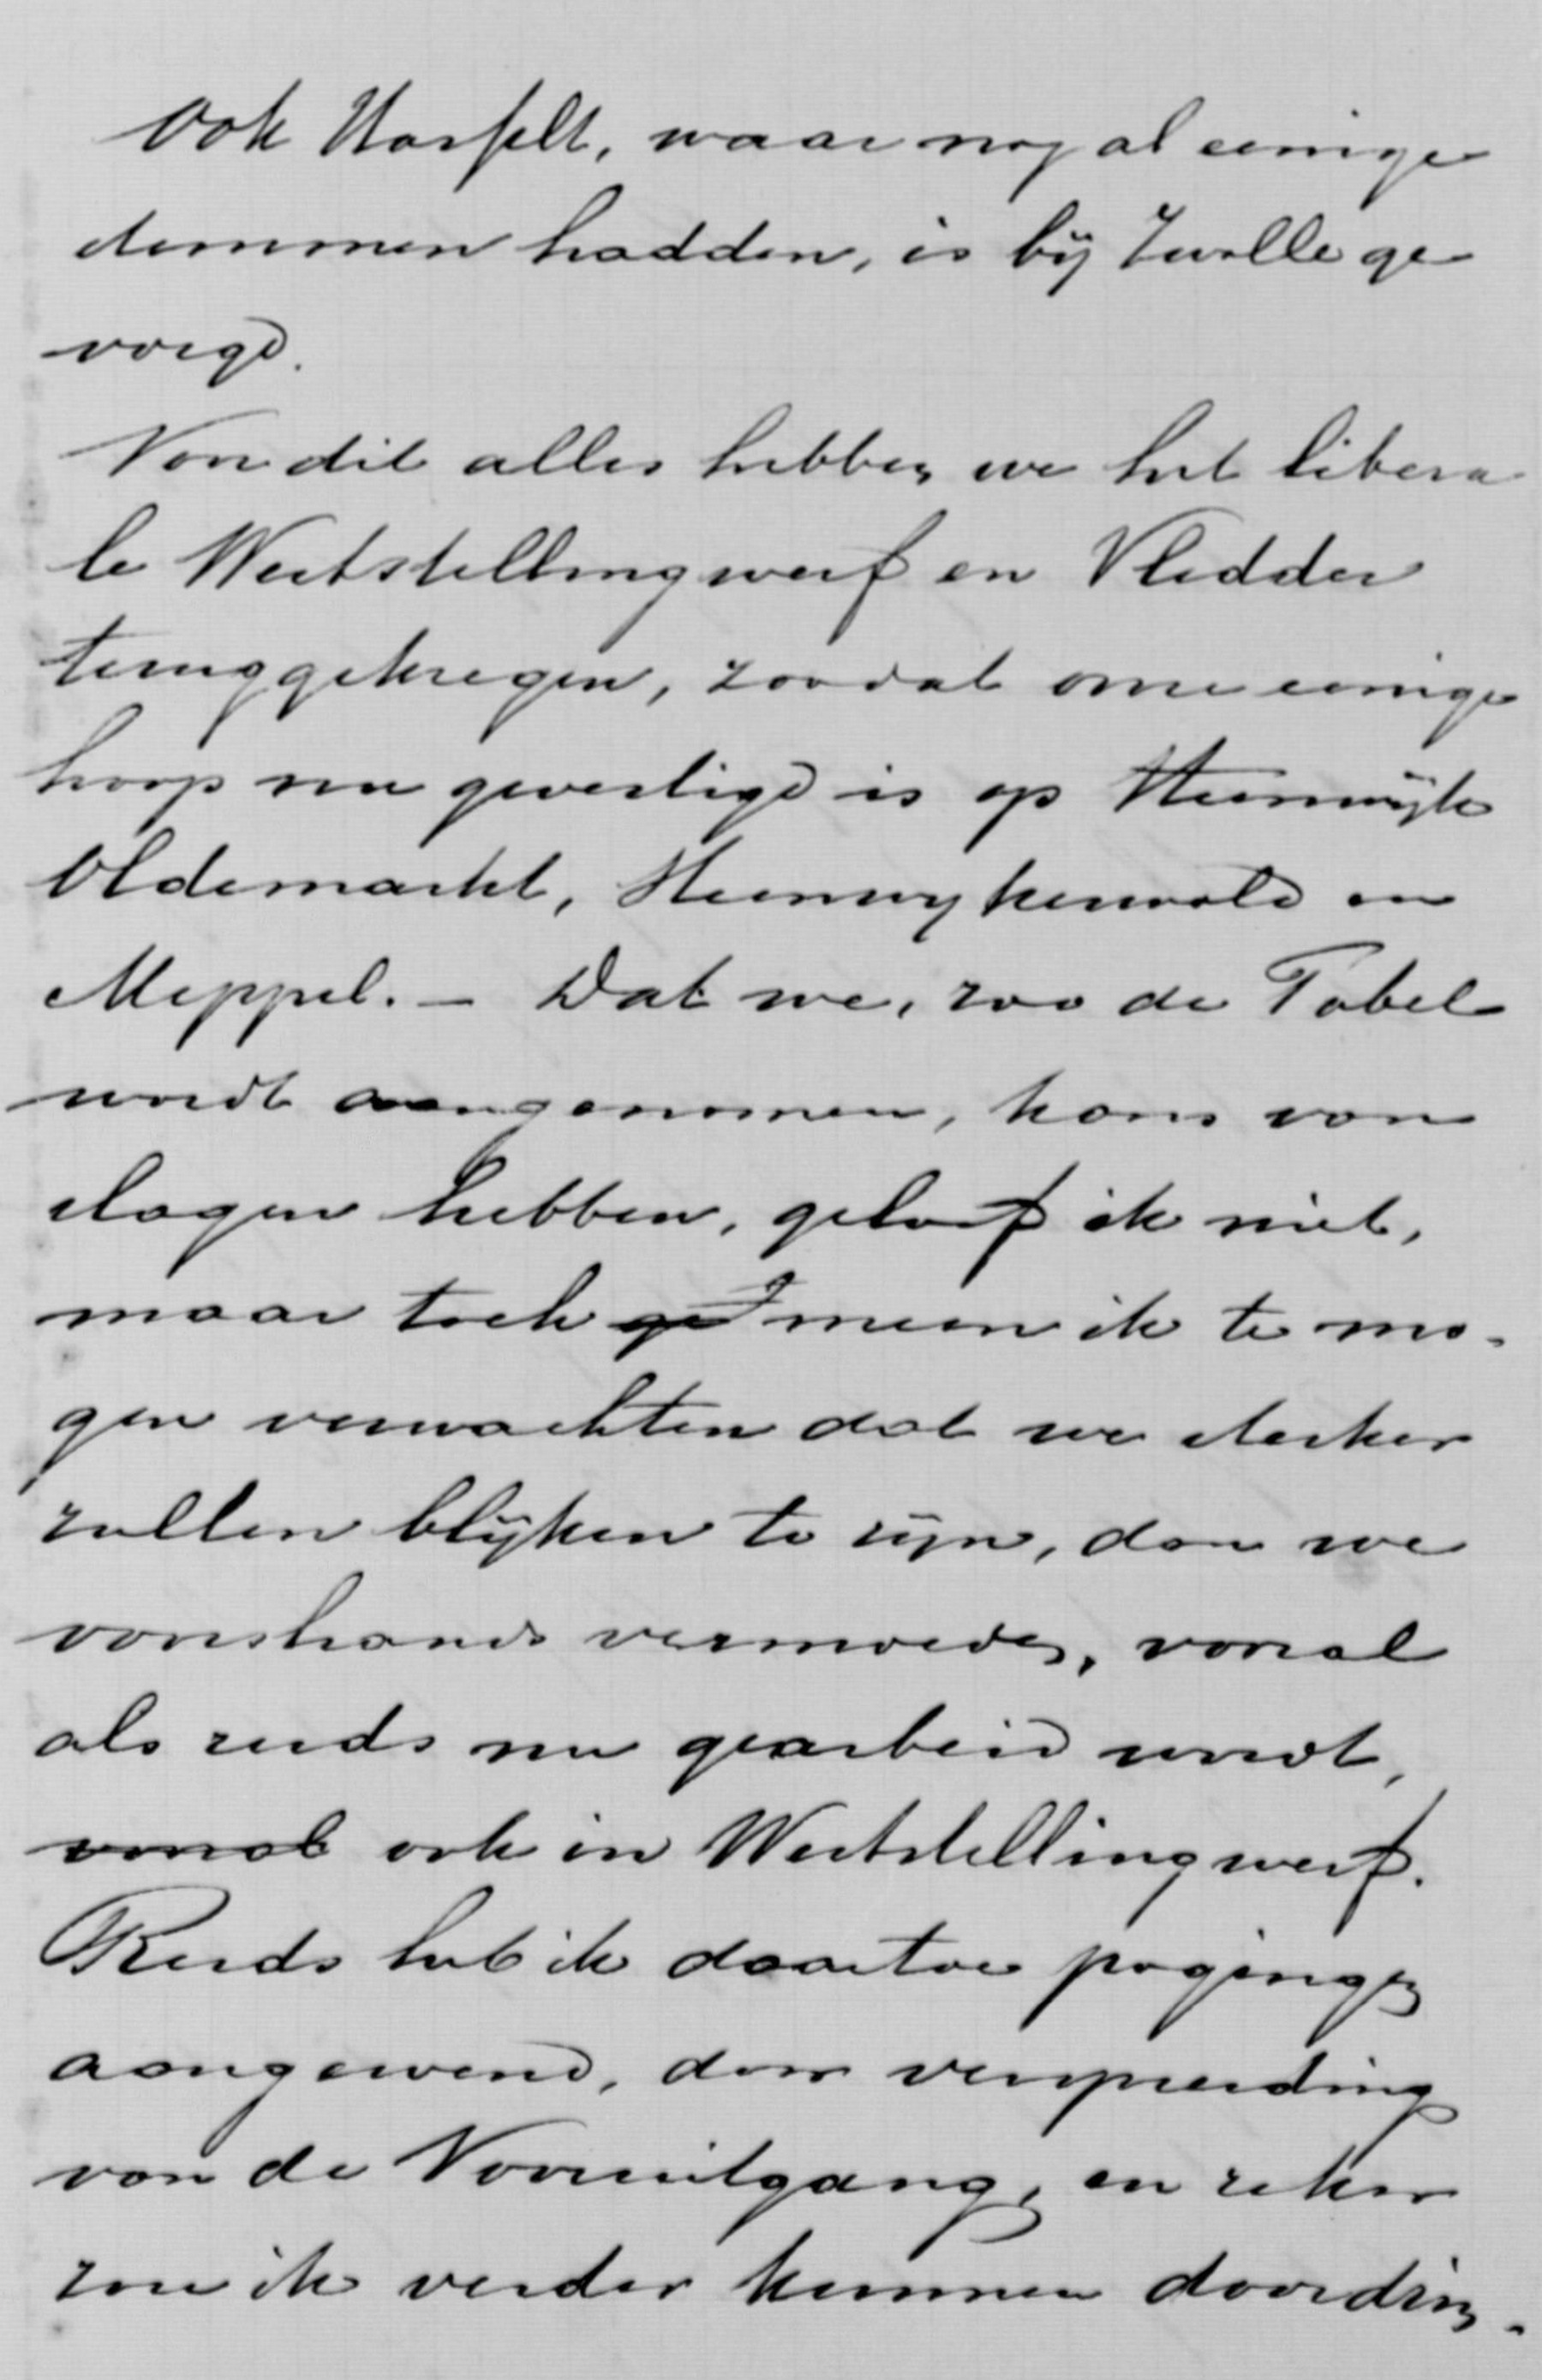 Ook Hasselt, waar nog al eenige
stemmen hadden, is bij Zwolle ge
voegd.
Van dit alles hebben we het libera
le Weststellingwerf en Vledder
teruggekregen, zoodat onze eenige
hoop nu gevestigd is op Steenwijk
Oldemarkt, Steenwykerwold en
Meppel. – Dat we, zoo de Tabel
wordt aangenomen, kans van
slagen hebben, geloof ik niet,
maar toch meen ik te mo-
gen verwachten dat we sterker
zullen blijken te zijn, dan we
vooishands vermoeden, vooral
als reeds nu gearbeid wordt,
vooral ook in Weststellingwerf.
Reeds heb ik daartoe pogingen
aangewend, door verspreiding
van de Vooruitgang, en zeker
zou ik verder kunnen doordrin-